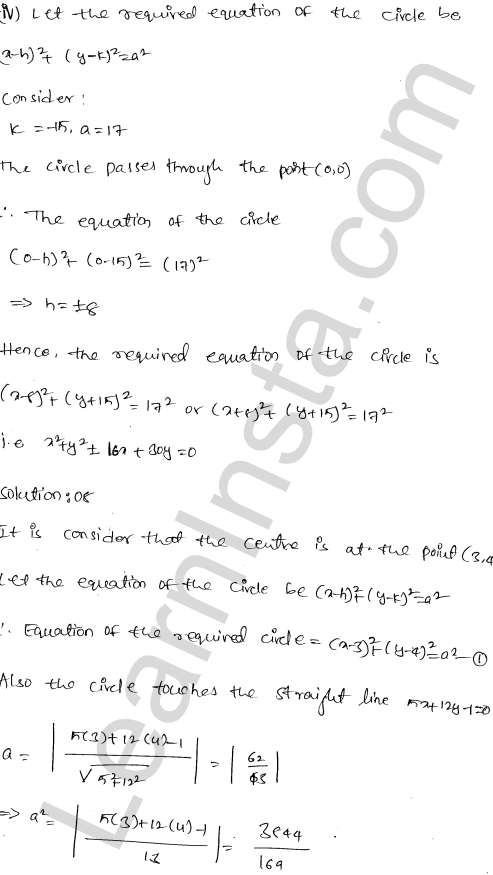 (iv) Let the required equation of the circle be
(x-h)²+ (y-k)²=a²
Consider:
K =-15, a=17
The circle passes through the point (0,0)
∴ The equation of the circle
(0-h)²+ (0-15)²= (17)²
=> h=±8
Hence, the required equation of the circle is
(x-8)²+(y+15)²=17² or (x+8)²+ (y+15)²=17²
i.e x²+y²± 16x+30y=0
Solution:08
It is consider that the centre is at the point (3,4
Let the equation of the circle be (x-h)²+(y-k)²=a²
∴ Equation of the required circle= (x-3)²+(y-4)²=a² -①
Also the circle touches the straight line 5x+12y-1=0
a = | 5(3)+12(4)-1 / √5²+12² | = | 62 / 13 |
=> a²= | 5(3)+12(4)-1 / 13 | = 3844 / 169
LearnInsta.com